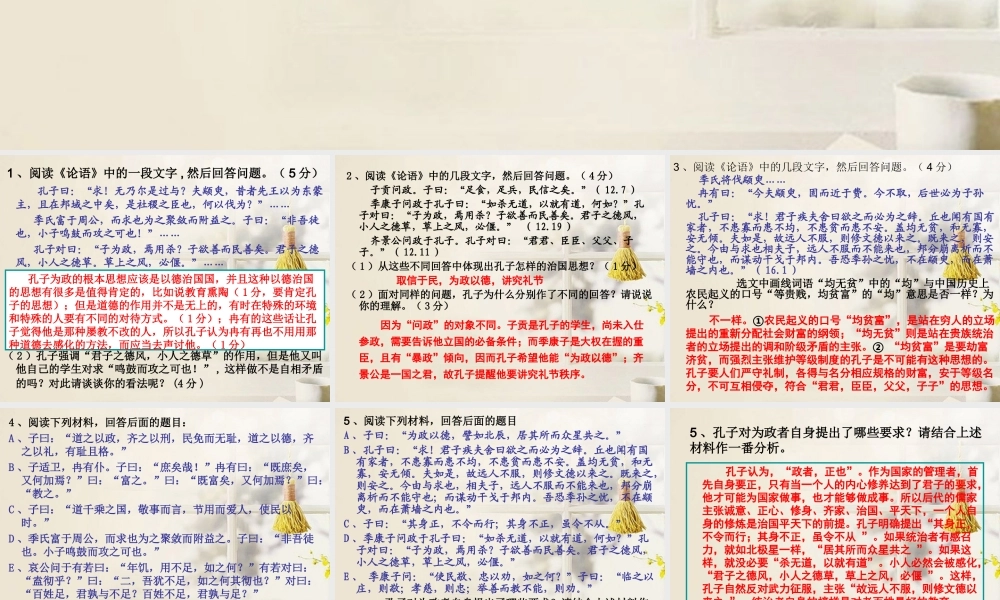 1、阅读《论语》中的一段文字,然后回答问题。（5分）
孔子曰：“求！无乃尔是过与？夫颛臾，昔者先王以为东蒙
主，且在邦域之中矣，是社稷之臣也，何以伐为？”……
季氏富于周公，而求也为之聚敛而附益之。子曰：“非吾徒
也，小子鸣鼓而攻之可也！”……
孔子对曰：“子为政，焉用杀？子欲善而民善矣。君子之德
风，小人之德草。草上之风，必偃。”……
孔子为政的根本思想应该是以德治国国，并且这种以德治国
的思想有很多是值得肯定的，比如说教育熏陶（1分，要肯定孔
子的思想）；但是道德的作用并不是无上的，有时在特殊的环境
和特殊的人要有不同的对待方式。（1分）；冉有的这些话让孔
子觉得他是那种屡教不改的人，所以孔子认为冉有再也不用用那
种道德去感化的方法，而应当去声讨他。（1分）
（2）孔子强调“君子之德风，小人之德草”的作用，但是他又叫
他自己的学生对求“鸣鼓而攻之可也！”,这样做不是自相矛盾
的吗？对此请谈谈你的看法呢？（4分）
2、阅读《论语》中的几段文字，然后回答问题。（4分）
子贡问政。子曰：“足食，足兵，民信之矣。”（12.7）
季康子问政于孔子曰：“如杀无道，以就有道，何如？”孔
子对曰：“子为政，焉用杀？子欲善而民善矣。君子之德风，
小人之德草，草上之风，必偃。”（12.19）
齐景公问政于孔子。孔子对曰：“君君、臣臣、父父、子
子。”（12.11）
（1）从这些不同回答中体现出孔子怎样的治国思想？（1分）
取信于民，为政以德，讲究礼节
（2）面对同样的问题，孔子为什么分别作了不同的回答？请说说
你的理解。（3分）
因为“问政”的对象不同。子贡是孔子的学生，尚未入仕
参政，需要告诉他立国的必备条件；而季康子是大权在握的重
臣，且有“暴政”倾向，因而孔子希望他能“为政以德”；齐
景公是一国之君，故孔子提醒他要讲究礼节秩序。
3、阅读《论语》中的几段文字，然后回答问题。（4分）
季氏将伐颛臾……
冉有曰：“今夫颛臾，固而近于费。今不取，后世必为子孙
忧。”
孔子曰：“求！君子疾夫舍曰欲之而必为之辞。丘也闻有国有
家者，不患寡而患不均，不患贫而患不安。盖均无贫，和无寡，
安无倾。夫如是，故远人不服，则修文德以来之。既来之，则安
之。今由与求也相夫子，远人不服而不能来也，邦分崩离析而不
能守也，而谋动干戈于邦内。吾恐季孙之忧，不在颛臾，而在萧
墙之内也。”（16.1）
选文中画线词语“均无贫”中的“均”与中国历史上
农民起义的口号“等贵贱，均贫富”的“均”意思是否一样？为
什么？
不一样。①农民起义的口号“均贫富”，是站在穷人的立场
提出的重新分配社会财富的纲领；“均无贫”则是站在贵族统治
者的立场提出的调和阶级矛盾的主张。②“均贫富”是要劫富
济贫，而强烈主张维护等级制度的孔子是不可能有这种思想的。
孔子要人们严守礼制，各得与名分相应规格的财富，安于等级名
分，不可互相侵夺，符合“君君，臣臣，父父，子子”的思想。
4、阅读下列材料，回答后面的题目：
A、子曰：“道之以政，齐之以刑，民免而无耻，道之以德，齐
之以礼，有耻且格。”
B、子适卫，冉有仆。子曰：“庶矣哉！”冉有曰：“既庶矣，
又何加焉？”曰：“富之。”曰：“既富矣，又何加焉？”曰：
“教之。”
C、子曰：“道千乘之国，敬事而言，节用而爱人，使民以
时。”
D、季氏富于周公，而求也为之聚敛而附益之。子曰：“非吾徒
也。小子鸣鼓而攻之可也。”
E、哀公问于有若曰：“年饥，用不足，如之何？”有若对曰：
“盍彻乎？”曰：“二，吾犹不足，如之何其彻也？”对曰：
“百姓足，君孰与不足？百姓不足，君孰与足？”
5、阅读下列材料，回答后面的题目
A、子曰：“为政以德，譬如北辰，居其所而众星共之。”
B、孔子曰：“求！君子疾夫舍曰欲之而必为之辞。丘也闻有国
有家者，不患寡而患不均，不患贫而患不安。盖均无贫，和无
寡，安无倾。夫如是，故远人不服，则修文德以来之。既来之，
则安之。今由与求也，相夫子，远人不服而不能来也，邦分崩
离析而不能守也；而谋动干戈于邦内。吾恐季孙之忧，不在颛
臾，而在萧墙之内也。”
C、子曰：“其身正，不令而行；其身不正，虽令不从。”
D、季康子问政于孔子曰：“如杀无道，以就有道，何如？”孔
子对曰：“子为政，焉用杀？子欲善而民善矣。君子之德风，
小人之德草，草上之风，必偃。”
E、季康子问：“使民敬、忠以劝，如之何？”子曰：“临之以
庄，则敬；孝慈，则忠；举善而教不能，则劝。”
5、孔子对为政者自身提出了哪些要求？请结合上述
材料作一番分析。
孔子认为，“政者，正也”。作为国家的管理者，首
先自身要正，只有当一个人的内心修养达到了君子的要求，
他才可能为国家做事，也才能够做成事。所以后代的儒家
主张诚意、正心、修身、齐家、治国、平天下，一个人自
身的修炼是治国平天下的前提。孔子明确提出“其身正，
不令而行；其身不正，虽令不从”。如果统治者有感召
力，就如北极星一样，“居其所而众星共之”。如果这
样，就没必要“杀无道，以就有道”。小人必然会被感化，
“君子之德风，小人之德草，草上之风，必偃”。这样，
孔子自然反对武力征服，主张“故远人不服，则修文德以